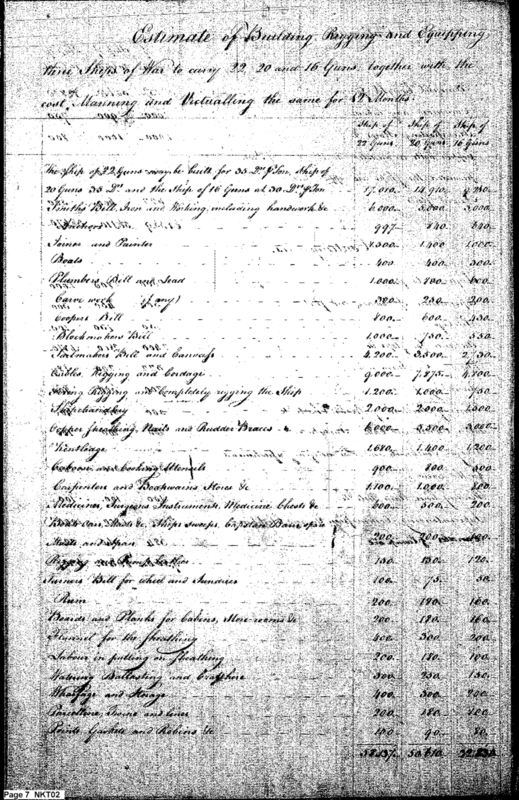 Estimate of Building Rigging and Equipping
three Ships of War to carry 22, 20 and 16 Guns, together with the
cost, Manning and Victualling the same for 12 Months
Ship of Ship of Ship of
22 Guns 20 Guns 16 Guns
The Ship of 22 Guns may be built for 35 Drs Ton, Ship of
20 Guns 33 Dr and the Ship of 16 Guns at 30 Drs Ton 17,010 14,910
Smiths Bill, Iron and Working including handwork &c 6,000 5,000
Anchors 997 840
Joiner and Painter 1,400 1,000
Boats 400 400 300
Plumbers Bill and Lead 1,000 800 600
Carve work (if any) 300 250 200
Coopers Bill 800 600 450
Blockmakers Bill 1,000 750 550
Sailmakers Bill and Canvass 4,200 3,500
Cables, Rigging and Cordage 9,000 7,875
Rigging and Completely rigging the Ship 1,200 1,000 750
Shipchandlery 2,000 2,000 1,500
Copper Sheathing, Nails and Rudder Braces 6,000 3,500 3,000
Kentledge 1,680 1,400 1,200
Caboose and Cooking Utensils 900 800 500
Carpenters and Boatswains Stores &c 1,100 1,000 800
Medicines, Surgeons Instruments, Medicine Chests &c 600 500 200
Capstan Bars
Masts and Spars 200 200
Rigging and Pump Leather 150 130 120
Turners Bill for wheel and Sundries 100 75 50
Rum 200 180 160
Boards and Planks for Cabins, Store rooms &c 200 180 160
Flannel for the sheathing 400 300 200
Labour in putting on Sheathing 200 180 100
Watering Ballasting and 300 250 150
Wharfage and Storage 400 300 200
Twine and 200 180 100
Points, Gaskets and Robins &c 90 80
58,137 50,610
Page 7 NKT02